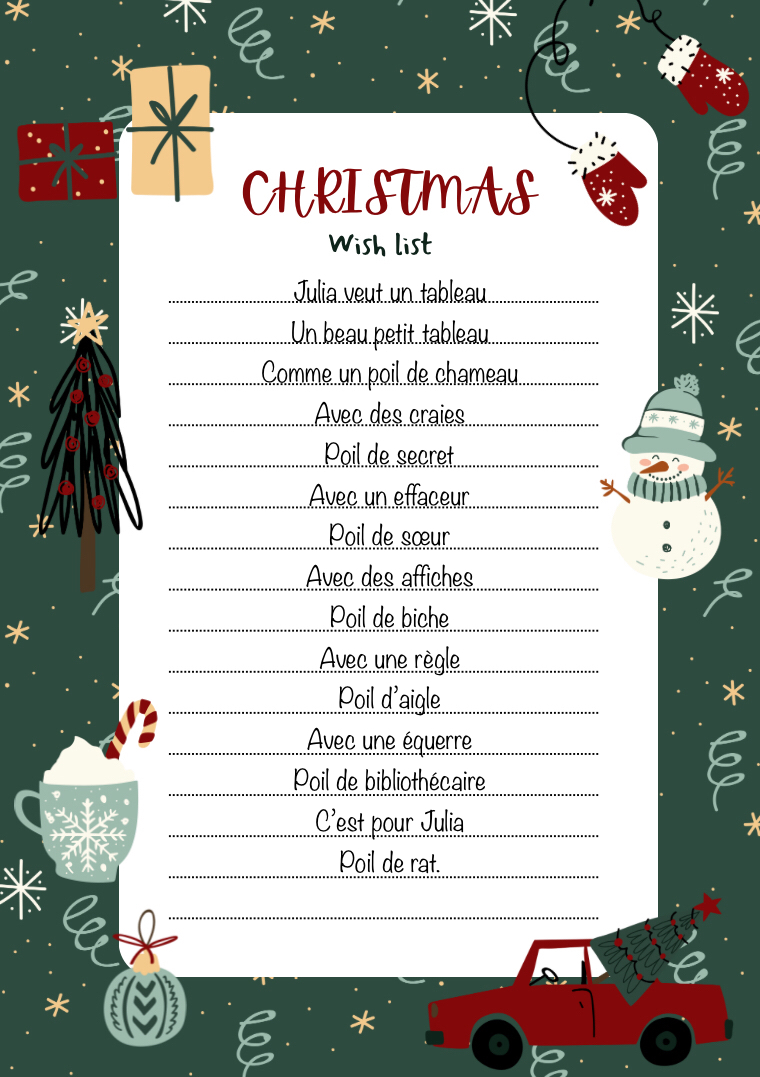 CHRISTMAS
Wish list
Julia veut un tableau
Un beau petit tableau
Comme un poil de chameau
Avec des craies
Poil de secret
Avec un effaceur
Poil de sœur
Avec des affiches
Poil de biche
Avec une règle
Poil d'aigle
Avec une équerre
Poil de bibliothécaire
C'est pour Julia
Poil de rat.